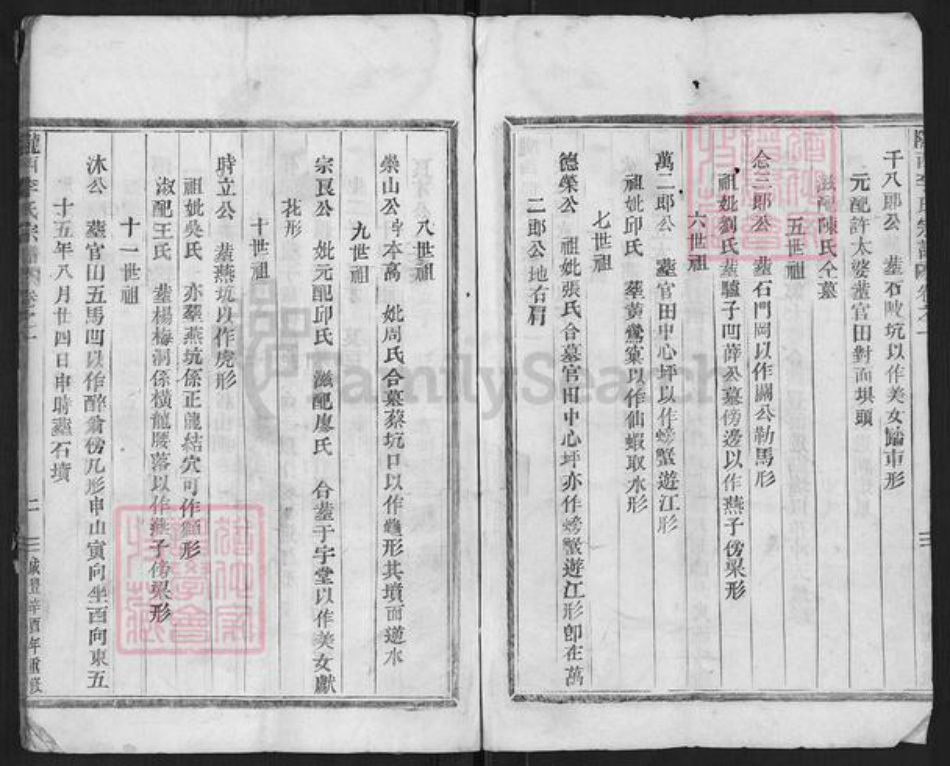 隴西李氏宗譜 卷之一
千八郎公 塟石敗坑以作美女蹁車形
元配許太婆塟官田對面垻頭
滋配陳氏仝墓
五世祖
念三郎公 塟石門岡以作關公勒馬形
祖妣劉氏塟驢子凹薛公墓傍邊以作燕子傍梁形
六世祖
萬二郎公 塟官田中心坪以作螃蟹遊江形
祖妣邱氏 塟黃鶯窠以作仙蝦取水形
七世祖
德榮公 祖妣張氏合墓官田中心坪亦作螃蟹遊江形卽在萬
二郎公地右肩
八世祖
崇山公 本高 妣周氏合墓蔡坑口以作龜形其墳面逆水
九世祖
宗良公 妣元配邱氏 滋配廖氏 合塟于宇堂以作美女獻
花形
十世祖
時立公 塟燕坑以作虎形
祖妣吳氏 亦塟燕坑係正龍結穴可作 形
淑配王氏 塟楊梅洞係橫龍腰落以作燕子傍梁形
十一世祖
沐公 塟官田五馬凹以作醉翁傍几形申山寅向坐酉向東五
十五年八月廿四日申時塟石墳
隴西李氏宗譜 卷之一 二 咸豐辛酉年重修
FamilySearch